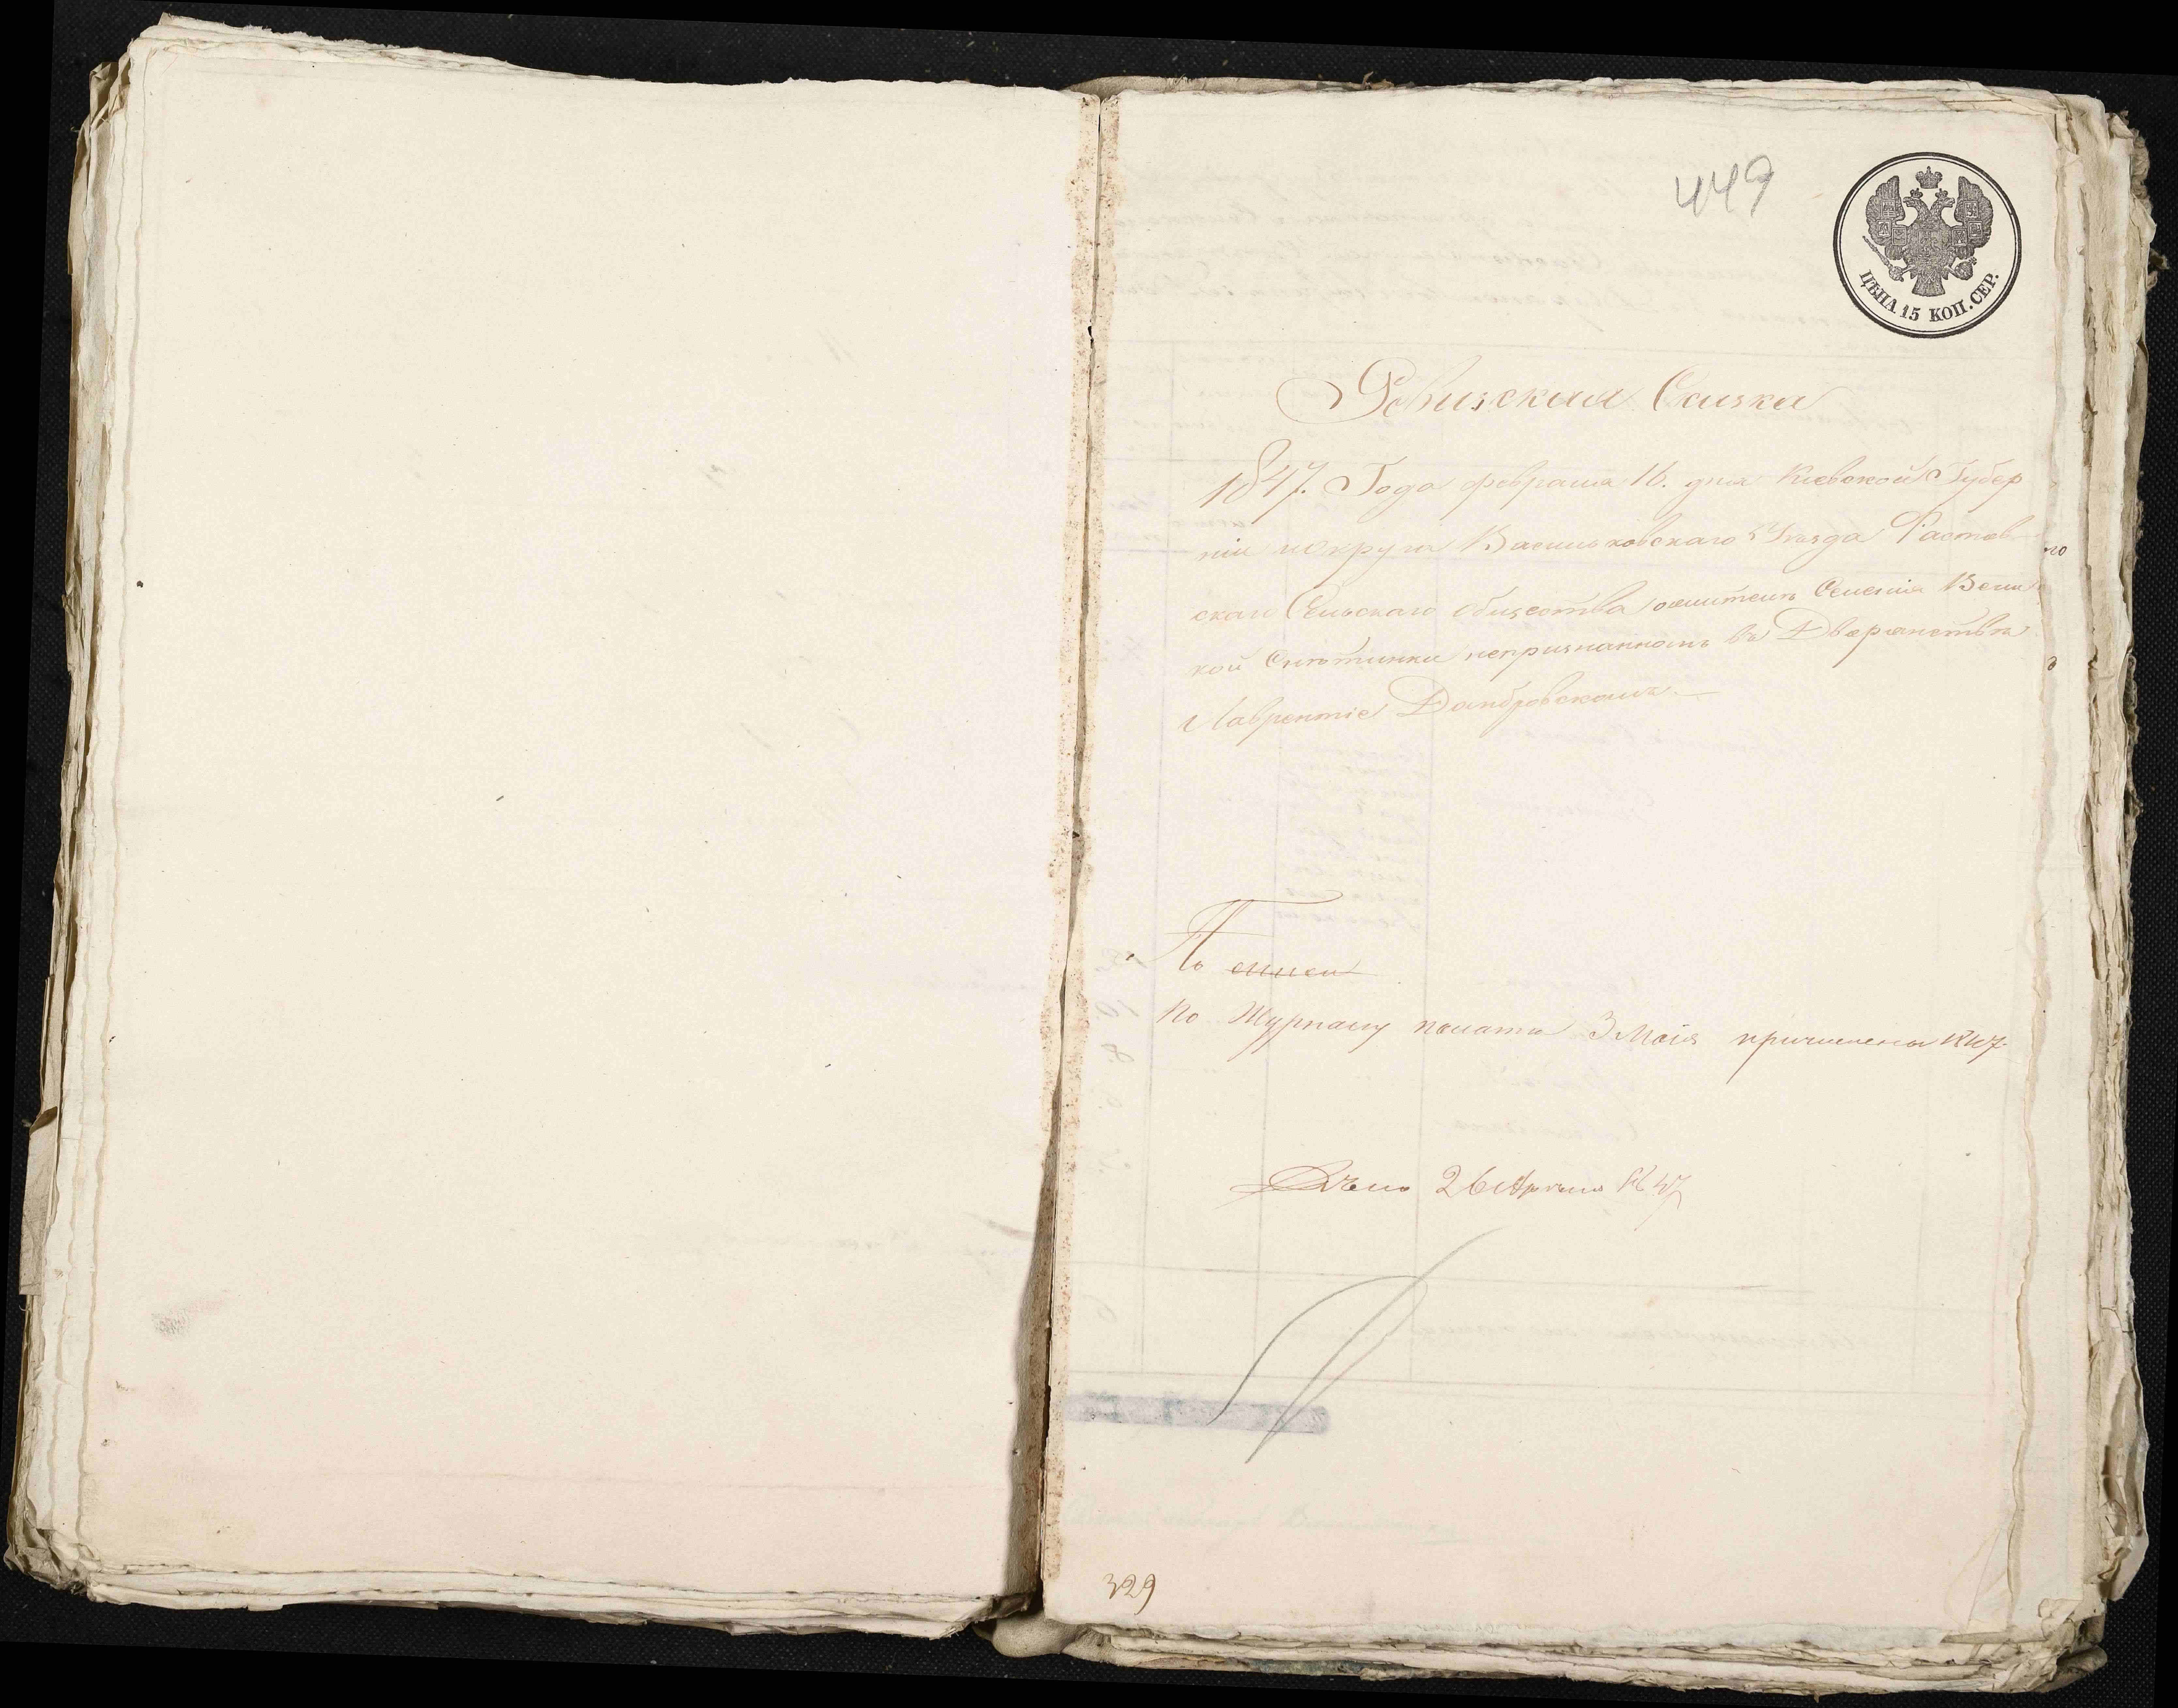 449
ЦѢНА 15 КОП. СЕР.
Ревизская Сказка
1847. Года февраля 16. дня Киевской Губер
ніи и округа Васильковскаго Уѣзда Растов
скаго Сельскаго Общества жителя Селенія Вели
кой Снѣтинки непризнаннаго въ Дворянствѣ
Лаврентіе Домбровскомъ
По
По Журналу палаты 3 Маія причислены 1847
26 Апрѣля 1847
329